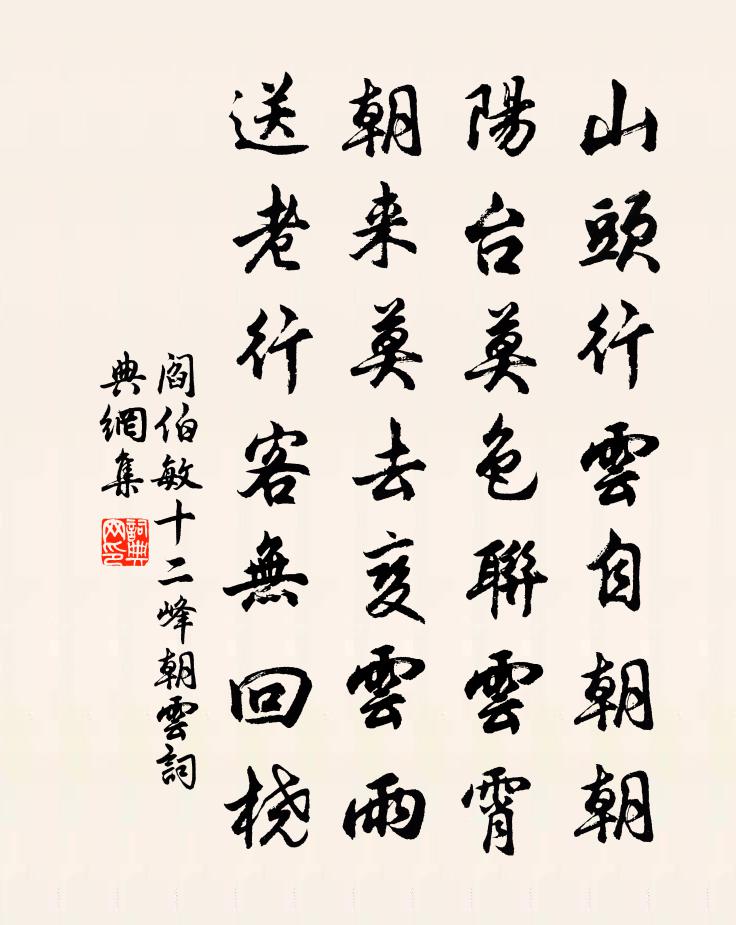 山頭行雲自朝朝
陽台莫色聯雲霄
朝来莫去变雲雨
送老行客無回桡
閻伯敏十二峰朝雲詞
典網集
詞典
网印